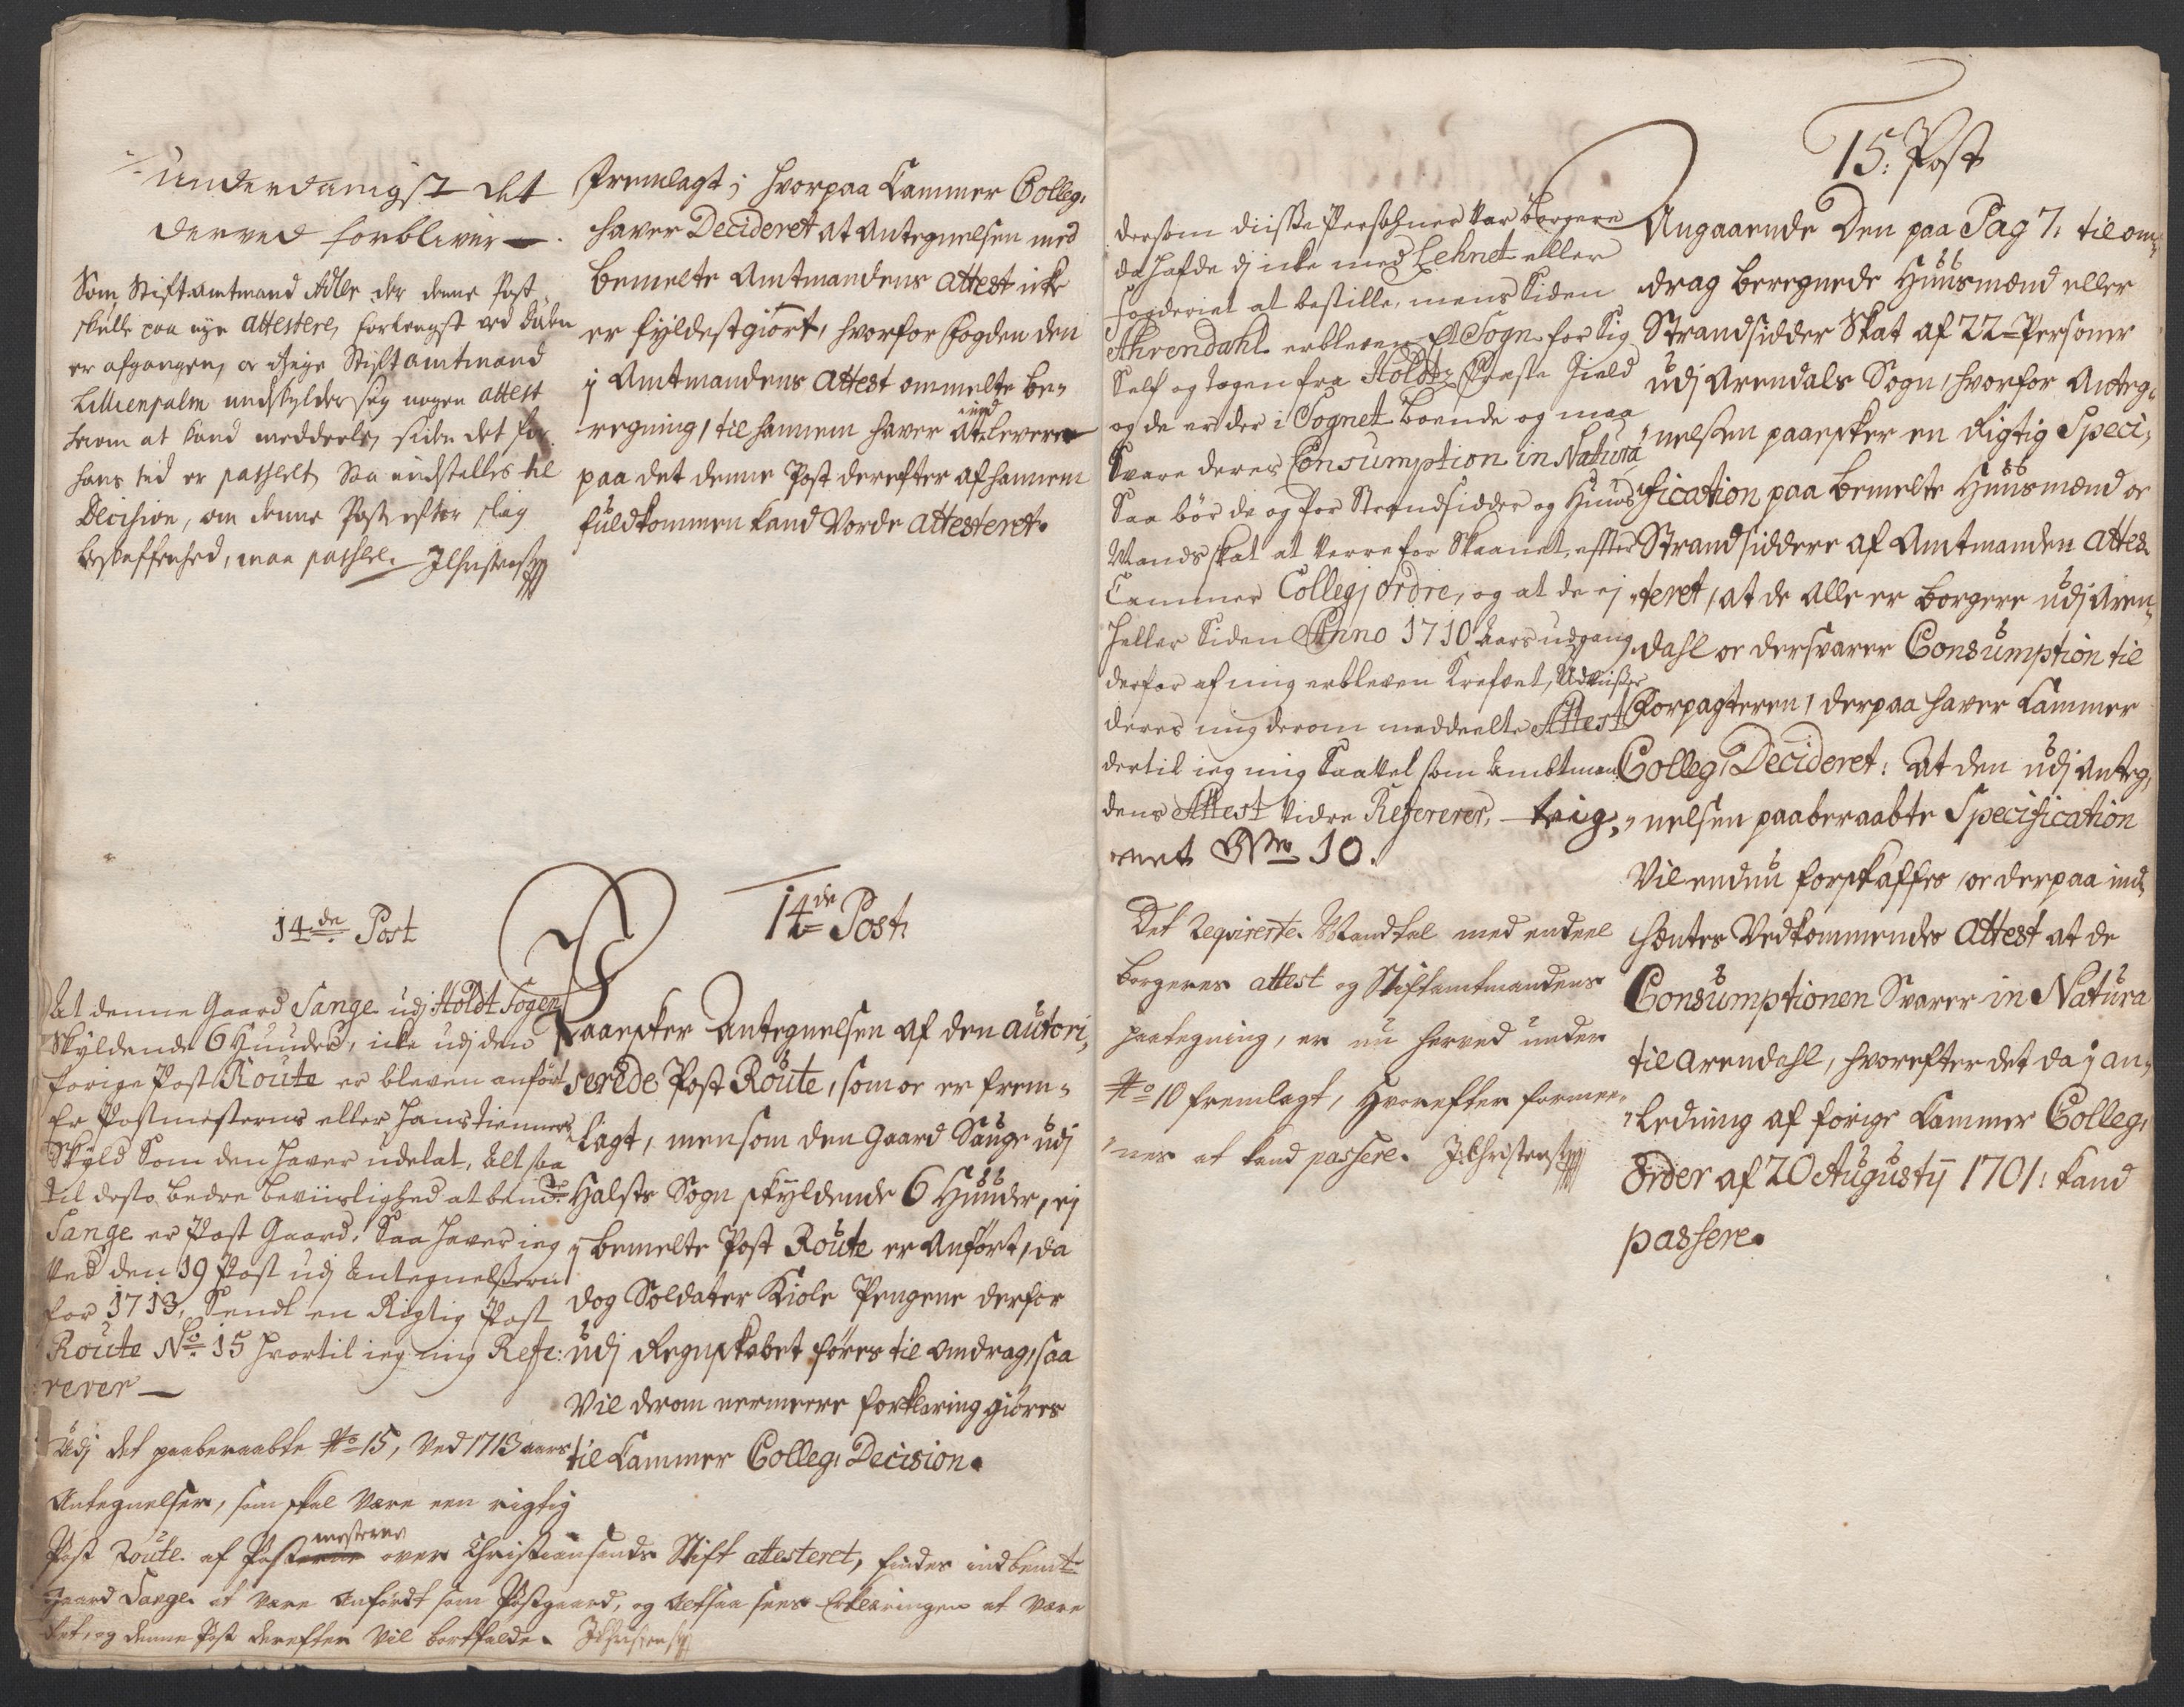 underdanigst det
derved forbliver
Som Stiftamtmand Adler der denne Post
skulle paa nye attestere, forlengst ved Døden
er afgangen, og ejige Stiftamtmand
Lillienpalm undskylder sig nogen attest
herom at kand meddeele, siden det for
hans tid er passeret, Saa indstilles til
Decision, om denne Post efter slig
beskaffenhed, maa passere. JChristens
fremlagt; hvorpaa Cammer Colleg:
haver Decideret at Antegnelsen med
bemelte Amtmandens attest icke
er fyldestgiort, hvorfor Fogden den
i Amtmandens attest ommelte be-
regning, til hannem haver at indlevere
paa det denne Post derefter af hannem
fuldkommen kand vorde attesteret.
14de Post
At denne Gaard Sange udj Holdt Sogen
Skyldende 6 Huuder, icke udj den
forige Post Route er bleven anført
er Postmesterens eller hans tienneres
Skyld Som den haver udelat, Alt saa
til desto bedre beviislighed at bemte
Sange er Post Gaard, Saa haver ieg
ved den 19 Post udj Antegnelserne
for 1713, Sendt en Rigtig Post
Route No 15 hvortil ieg mig Refe:
rerer
Udj det paaberaabte No 15, ved 1713 aars
Antegnelser, som skal være een rigtig
Post Route af Postmesteren over Christiansands Stift attesteret, findes indbemte
Gaard Sange at være Anført som Postgaard, og Altsaa sees Erklæringen at være
Ret, og denne Post derefter vil bortfalde. JChristens
14de Post
Paaesker Antegnelsen af den autori-
serede Post Route, som og er frem-
lagt, men som den Gaard Sange udj
Halste Sogn skyldende 6 Huuder, ej
i bemelte Post Route er Anført, da
dog Soldater Kiole Pengene derfor
udj Regnskabet føres til Omdrag, saa
vil derom nermeere forklaring giøres
til Cammer Colleg: Decision.
dersom diisse Persohner var borgere
da hafde dj icke med Lehnet eller
fogderiet at bestille, mens Siden
Ahrendahl er bleven Et Sogn for Sig
Self og tagen fra Holdtz Præste Jield
og de er der i Sognet boende og maa
Svare deres Consumption in Natura
Saa bør de og for Strandsidder og Huus
Mands skat at være for Skaanet, efter
Cammer Collegj ordre, og at de ej
heller Siden Anno 1710 Aars udgang
derfor af mig er bleven Krefvet, Udviiser
deres mig derom meddeelte Attest
dertil ieg mig Saavel som Ambtman
dens Attest vidre Refererer, teig-
net No 10.
Det Requirerte Mandtal med endeel
borgeres attest og Stiftamtmandens
paategning, er nu herved under
No 10 fremlagt, hvorefter formee-
nes at kand passere. JChristens
15. Post
Angaaende Den paa Pag 7. til om-
drag beregnede Huusmænd eller
Strandsidder Skat af 22 Personer
udj Arendals Sogn, hvorfor Anteg-
nelsen paaesker en Rigtig Speci-
fication paa bemelte Huusmænd og
Strandsiddere af Amtmanden attes-
teret, at de Alle er borgere udj Aren-
dahl og der svarer Consumption til
Forpagteren, derpaa haver Cammer
Colleg: Decideret: At den udj Anteg-
nelsen paaberaabte Specification
vil endnu forskaffes, og derpaa ind-
hentes vedkommendes attest at de
Consumptionen Svarer in Natura
til Arendahl, hvorefter det da i an-
ledning af forige Cammer Colleg:
Order af 20 Augustij 1701: kand
passere.